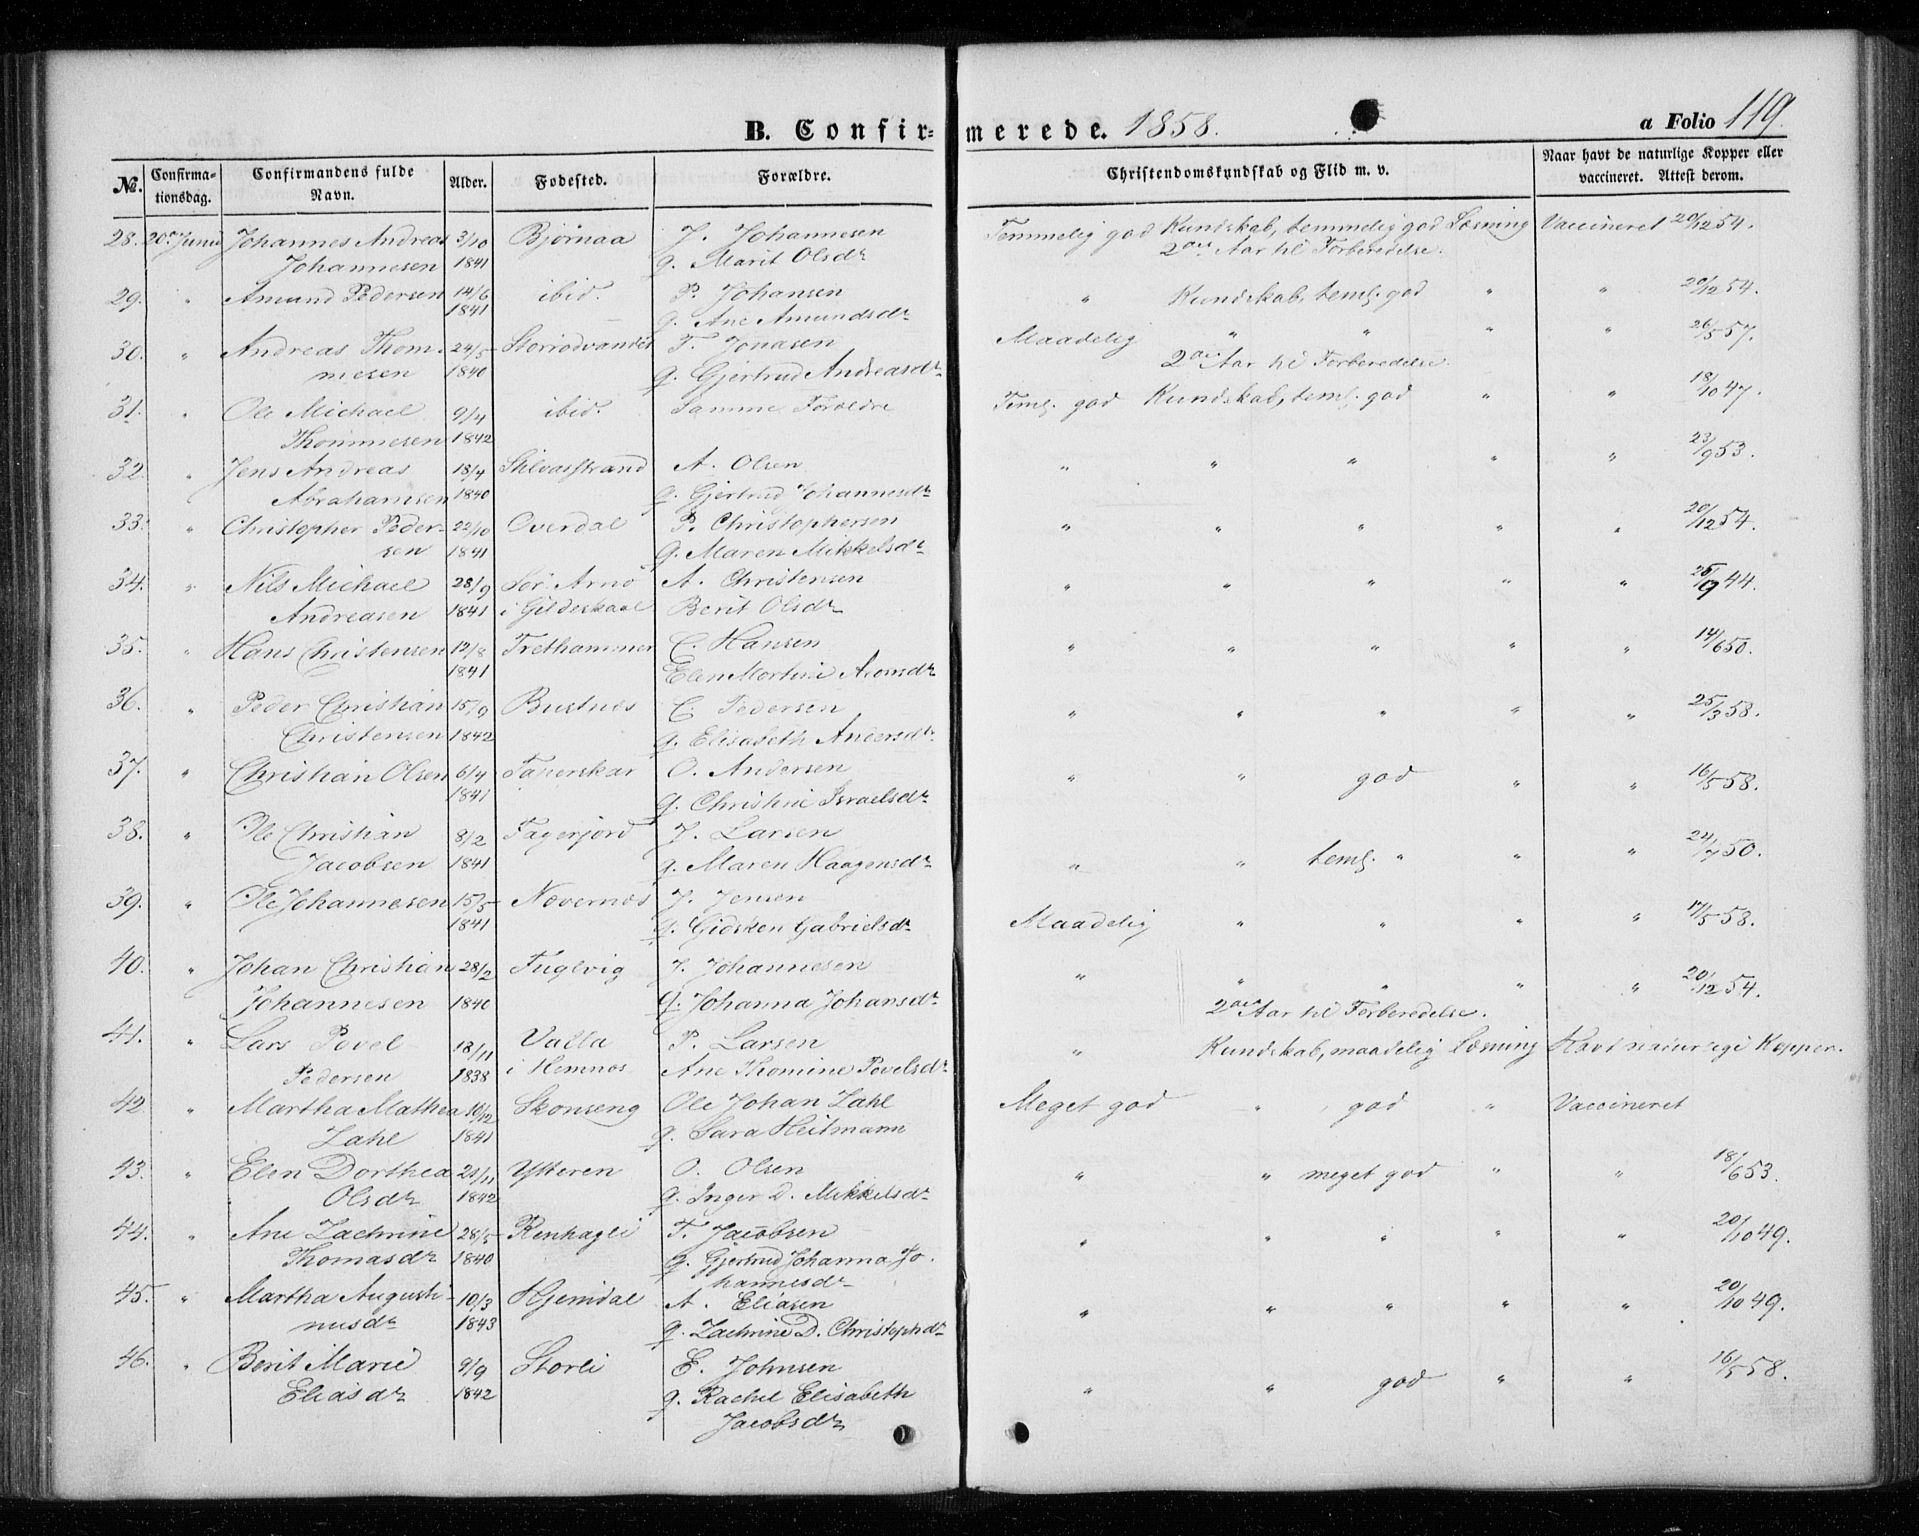 B. Confirmerede. 1858. a Folio 119.
№. Confirmationsdag. Confirmandens fulde Navn. Alder. Fødested. Forældre. Christendomskundskab og Flid m. v. Naar havt de naturlige Kopper eller vaccineret. Attest derom.
28. 20de Juni Johannes Andreas 3/10 Bjørnaa J. Johannesen Temmelig god Kundskab, temmelig god Læsning Vaccineret 20/12 54.
Johannesen 1841 g. Marit Olsdr 2det Aar til Forberedelse.
29. " Amund Pedersen 14/6 ibid. P. Johansen " Kundskab, teml. god " " 20/12 54.
1841 g. Ane Amundsdr
30. " Andreas Thom- 24/5 Storrødvandet T. Jonasen Maadelig " " " " 26/5 57.
mesen 1840 g. Gjertrud Andreasdr 2det Aar til Forberedelse.
31. " Ole Michael 9/4 ibid. Samme Foreldre Teml. god Kundskab, teml. god " " 18/10 47.
Thommesen 1842
32. " Jens Andreas 18/4 Stilvasstrand A. Olsen " " " " " 23/9 53.
Abrahamsen 1840 g. Gjertrud Johannesdr
33. " Christopher Peder- 22/10 Overdal P. Christophersen " " " " " 20/12 54.
sen 1841 g. Maren Mikkelsdr
34. " Nils Michael 28/9 Sør Arnø A. Christensen " " " " " 44.
Andreasen 1841 i Gildeskaal Berit Olsdr
35. " Hans Christensen 12/8 Trethammer C. Hansen " " " " " 14/6 50.
1841 Elen Martine Aronsdr
36. " Peder Christian 15/9 Bustnes C. Pedersen " " " " " 25/3 58.
Christensen 1842 g. Elisabeth Andersdr
37. " Christian Olsen 6/4 O. Andersen " " god " " 16/5 58.
1841 g. Christine Israelsdr
38. " Ole Christian 8/2 Fagerjord J. Larsen " " teml. " " " 24/7 50.
Jacobsen 1841 g. Maren Haagensdr
39. " Ole Johannesen 15/5 Nævernes J. Jensen Maadelig " " " " 17/5 58.
1841 g. Gidsken Gabrielsdr
40. " Johan Christian 28/2 Fuglvig J. Johannesen " " " " " 20/12 54.
Johannesen 1840 g. Johanna Johansdr 2det Aar til Forberedelse.
41. " Lars Povel 18/11 Valla P. Larsen " Kundskab, maadelig Læsning Havt naturlige Kopper.
Pedersen 1838 i Hemnes Ane Thomine Povelsdr
42 " Martha Mathea 10/12 Skonseng Ole Johan Zahl Meget god " god " Vaccineret
Zahl 1841 g. Sara Heitmann
43. " Elen Dorthea 21/11 Ytteren O. Olsen " " meget god " " 18/6 53.
Olsdr 1842 g. Inger D. Mikkelsdr
44. " Ane Zachrine 28/5 Renhagli T. Jacobsen " " " " " 20/10 49.
Thomasdr 1840 g. Gjertrud Johanna Jo-
hannesdr
45. " Martha Augusti- 10/3 Hjemdal A. Eliasen " " " " " 20/10 49.
nusdr 1843 g. Zachrine D. Christophdr
46. " Berit Marie 9/9 Storli E. Johnsen " " god " " 16/5 58.
Eliasdr 1842 g. Rachel Elisabeth
Jacobsdr